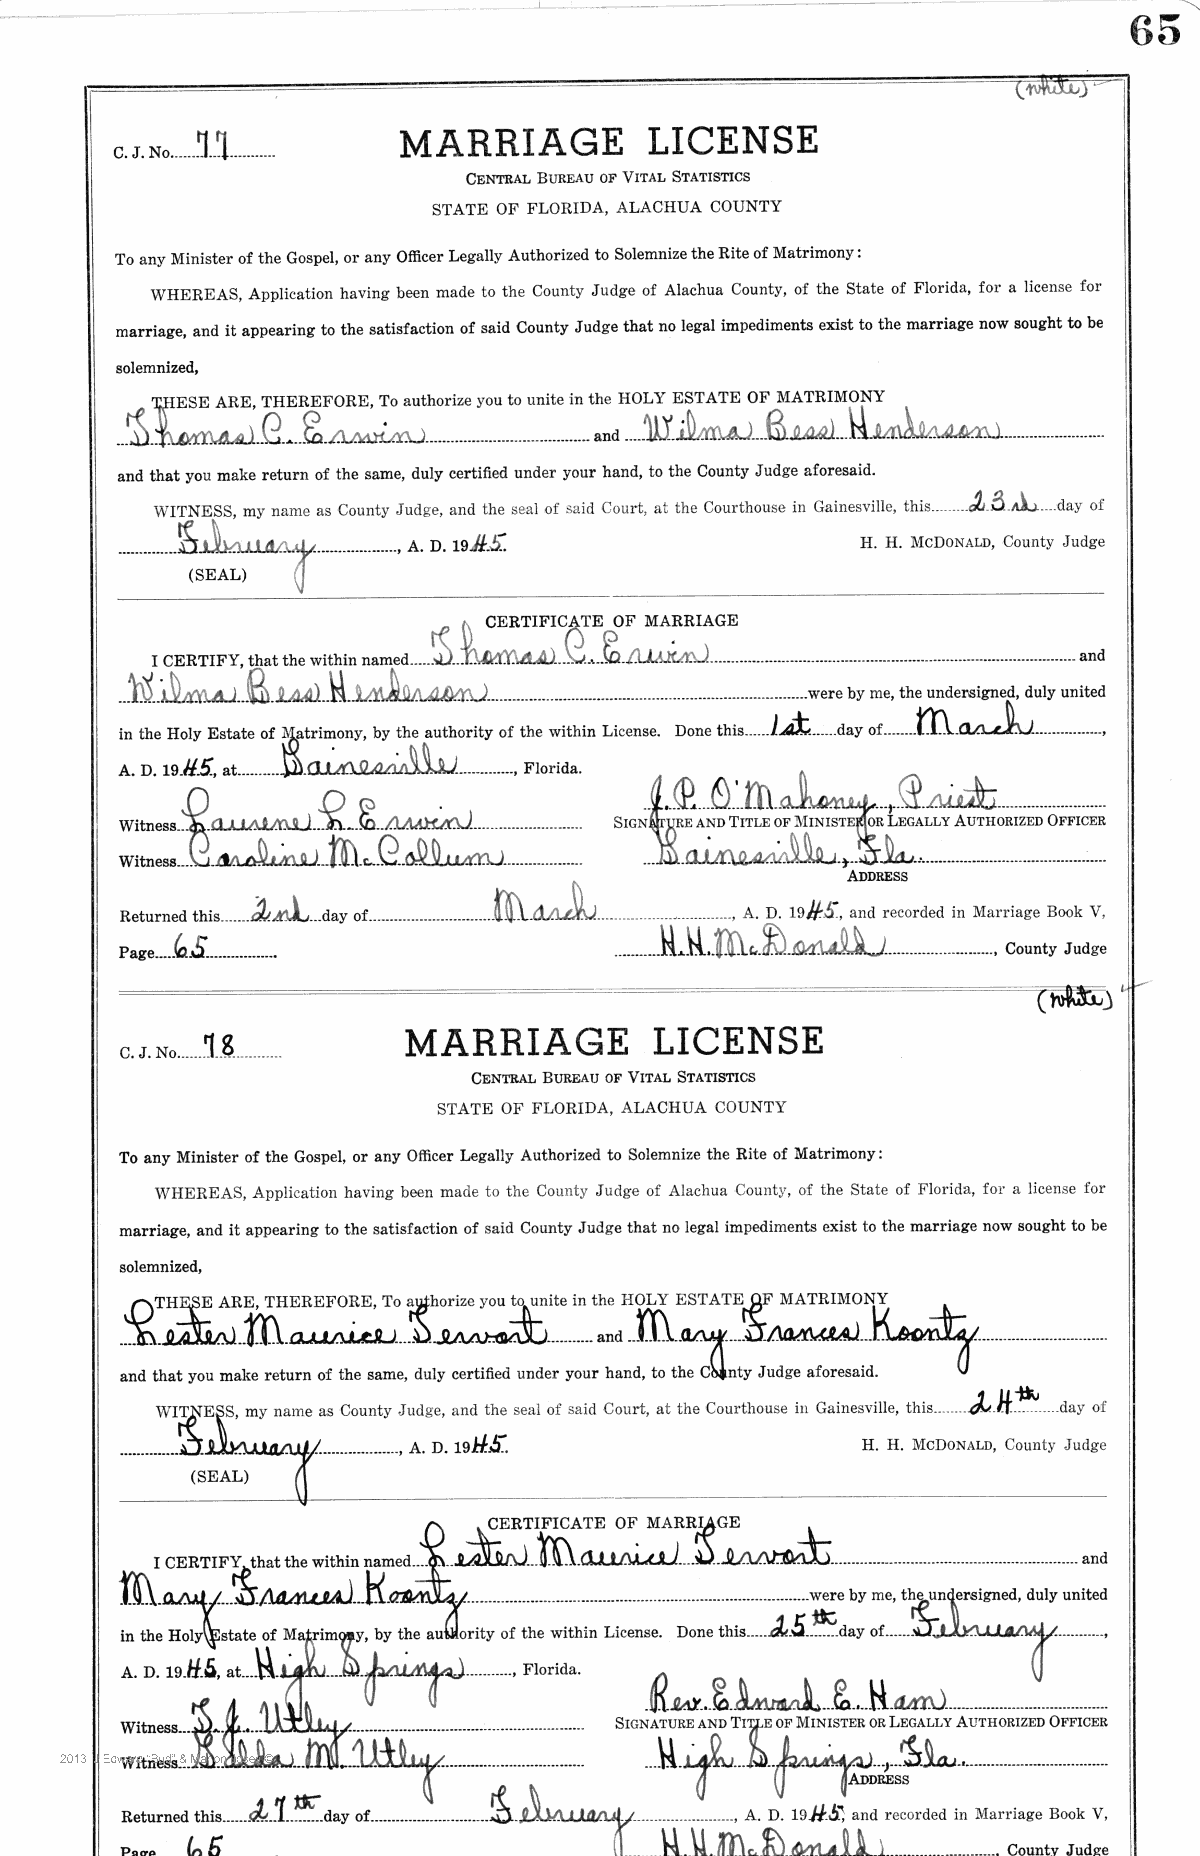 65
(white)
C. J. No. 77
MARRIAGE LICENSE
CENTRAL BUREAU OF VITAL STATISTICS
STATE OF FLORIDA, ALACHUA COUNTY
To any Minister of the Gospel, or any Officer Legally Authorized to Solemnize the Rite of Matrimony:
WHEREAS, Application having been made to the County Judge of Alachua County, of the State of Florida, for a license for
marriage, and it appearing to the satisfaction of said County Judge that no legal impediments exist to the marriage now sought to be
solemnized,
THESE ARE, THEREFORE, To authorize you to unite in the HOLY ESTATE OF MATRIMONY
Thomas C. Erwin and Wilma Bess Henderson
and that you make return of the same, duly certified under your hand, to the County Judge aforesaid.
WITNESS, my name as County Judge, and the seal of said Court, at the Courthouse in Gainesville, this 23rd day of
February, A. D. 1945. H. H. MCDONALD, County Judge
(SEAL)
CERTIFICATE OF MARRIAGE
I CERTIFY, that the within named Thomas C. Erwin and
Wilma Bess Henderson were by me, the undersigned, duly united
in the Holy Estate of Matrimony, by the authority of the within License. Done this 1st day of March,
A. D. 1945, at Gainesville, Florida.
J. P. O'Mahoney, Priest
Witness Laurene L Erwin SIGNATURE AND TITLE OF MINISTER OR LEGALLY AUTHORIZED OFFICER
Witness Caroline McCollum Gainesville, Fla.
ADDRESS
Returned this 2nd day of March, A. D. 1945, and recorded in Marriage Book V,
Page 65. H. H. McDonald, County Judge
(white)
C. J. No. 78
MARRIAGE LICENSE
CENTRAL BUREAU OF VITAL STATISTICS
STATE OF FLORIDA, ALACHUA COUNTY
To any Minister of the Gospel, or any Officer Legally Authorized to Solemnize the Rite of Matrimony:
WHEREAS, Application having been made to the County Judge of Alachua County, of the State of Florida, for a license for
marriage, and it appearing to the satisfaction of said County Judge that no legal impediments exist to the marriage now sought to be
solemnized,
THESE ARE, THEREFORE, To authorize you to unite in the HOLY ESTATE OF MATRIMONY
Lester Maurice Tervort and Mary Frances Koontz
and that you make return of the same, duly certified under your hand, to the County Judge aforesaid.
WITNESS, my name as County Judge, and the seal of said Court, at the Courthouse in Gainesville, this 24th day of
February, A. D. 1945. H. H. MCDONALD, County Judge
(SEAL)
CERTIFICATE OF MARRIAGE
I CERTIFY, that the within named Lester Maurice Tervort and
Mary Frances Koontz were by me, the undersigned, duly united
in the Holy Estate of Matrimony, by the authority of the within License. Done this 25th day of February,
A. D. 1945, at High Springs, Florida.
Rev. Edward E. Ham
Witness T. J. Utley SIGNATURE AND TITLE OF MINISTER OR LEGALLY AUTHORIZED OFFICER
2013 Edward "Bud" &
Witness M. Utley High Springs, Fla.
ADDRESS
Returned this 27th day of February, A. D. 1945, and recorded in Marriage Book V,
Page 65 H. H. McDonald, County Judge